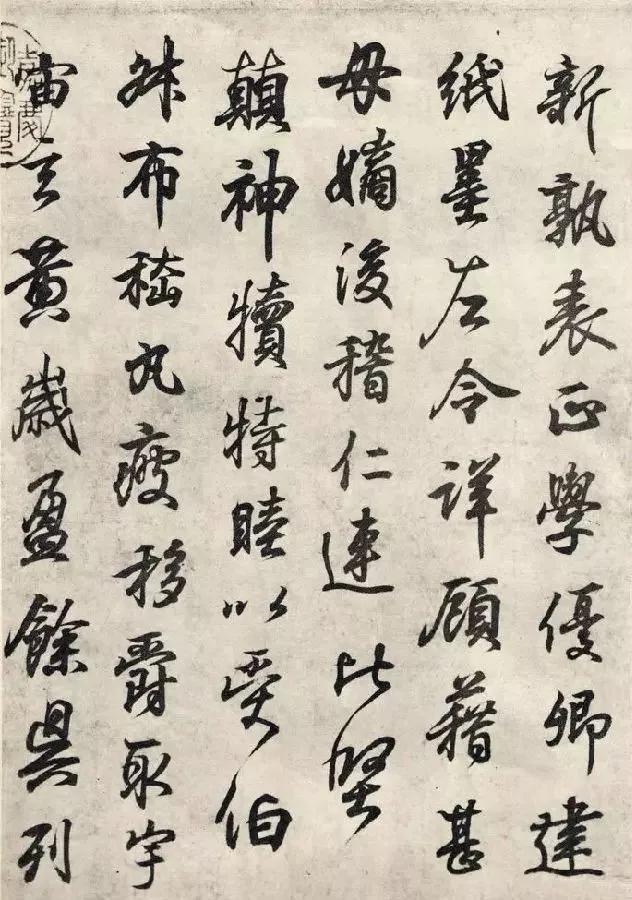 新孰表正學優卿建
紙墨左令詳顧藉甚
母嫡後稽仁連比堅
顛神犢特睦以受伯
叔布嵇丸疲移爵取宇
宙玄黃歲盈餘列